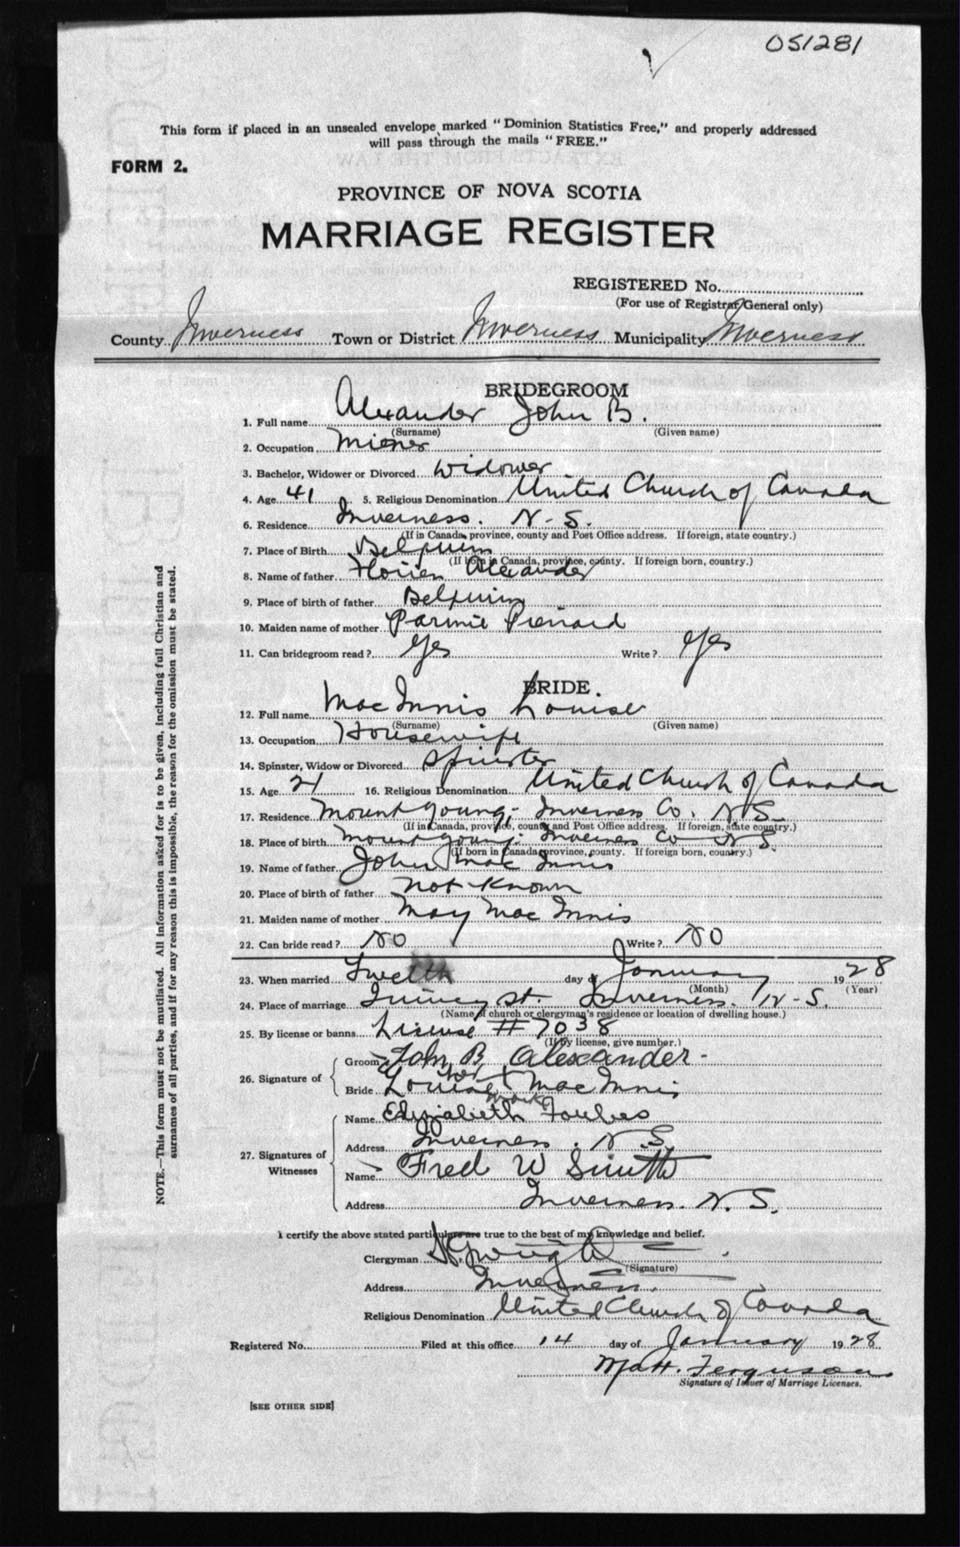 051281
This form if placed in an unsealed envelope marked "Dominion Statistics Free," and properly addressed
will pass through the mails "FREE."
FORM 2.
PROVINCE OF NOVA SCOTIA
MARRIAGE REGISTER
REGISTERED No.
(For use of Registrar General only)
County Inverness Town or District Inverness Municipality Inverness
BRIDEGROOM
1. Full name Alexander John B.
(Surname) (Given name)
2. Occupation Miner
3. Bachelor, Widower or Divorced Widower
4. Age 41 5. Religious Denomination United Church of Canada
6. Residence Inverness. N-S.
(If in Canada, province, county and Post Office address. If foreign, state country.)
7. Place of Birth Belgium
(If born in Canada, province, county. If foreign born, country.)
8. Name of father Alexander
9. Place of birth of father Belgium
10. Maiden name of mother
11. Can bridegroom read? Yes Write? Yes
BRIDE.
12. Full name MacInnis Louise
(Surname) (Given name)
13. Occupation Housewife
14. Spinster, Widow or Divorced Spinster
15. Age 21 16. Religious Denomination United Church of Canada
17. Residence Mount Young; Inverness Co. N.S.
(If in Canada, province, county and Post Office address. If foreign, state country.)
18. Place of birth Mount Young; Inverness Co N.S.
(If born in Canada province, county. If foreign born, country.)
19. Name of father John MacInnis
20. Place of birth of father not known
21. Maiden name of mother May MacInnis
22. Can bride read? No Write? No
23. When married Twelth day of January 1928
(Month) (Year)
24. Place of marriage St. Inverness. N-S.
(Name of church or clergyman's residence or location of dwelling house.)
25. By license or banns License # 7038
(If by license, give number.)
26. Signature of
Groom John B Alexander
Bride Louise her x mark MacInnis
27. Signatures of Witnesses
Name Elizabeth Forbes
Address Inverness. N.S.
Name Fred W Smith
Address Inverness. N.S.
I certify the above stated particulars are true to the best of my knowledge and belief.
Clergyman
(Signature)
Address Inverness.
Religious Denomination United Church of Canada
Registered No. Filed at this office 14 day of January 1928
Matt. Ferguson
Signature of Issuer of Marriage Licenses.
[SEE OTHER SIDE]
NOTE.—This form must not be mutilated. All information asked for is to be given, including full Christian and
surnames of all parties, and if for any reason this is impossible, the reason for the omission must be stated.